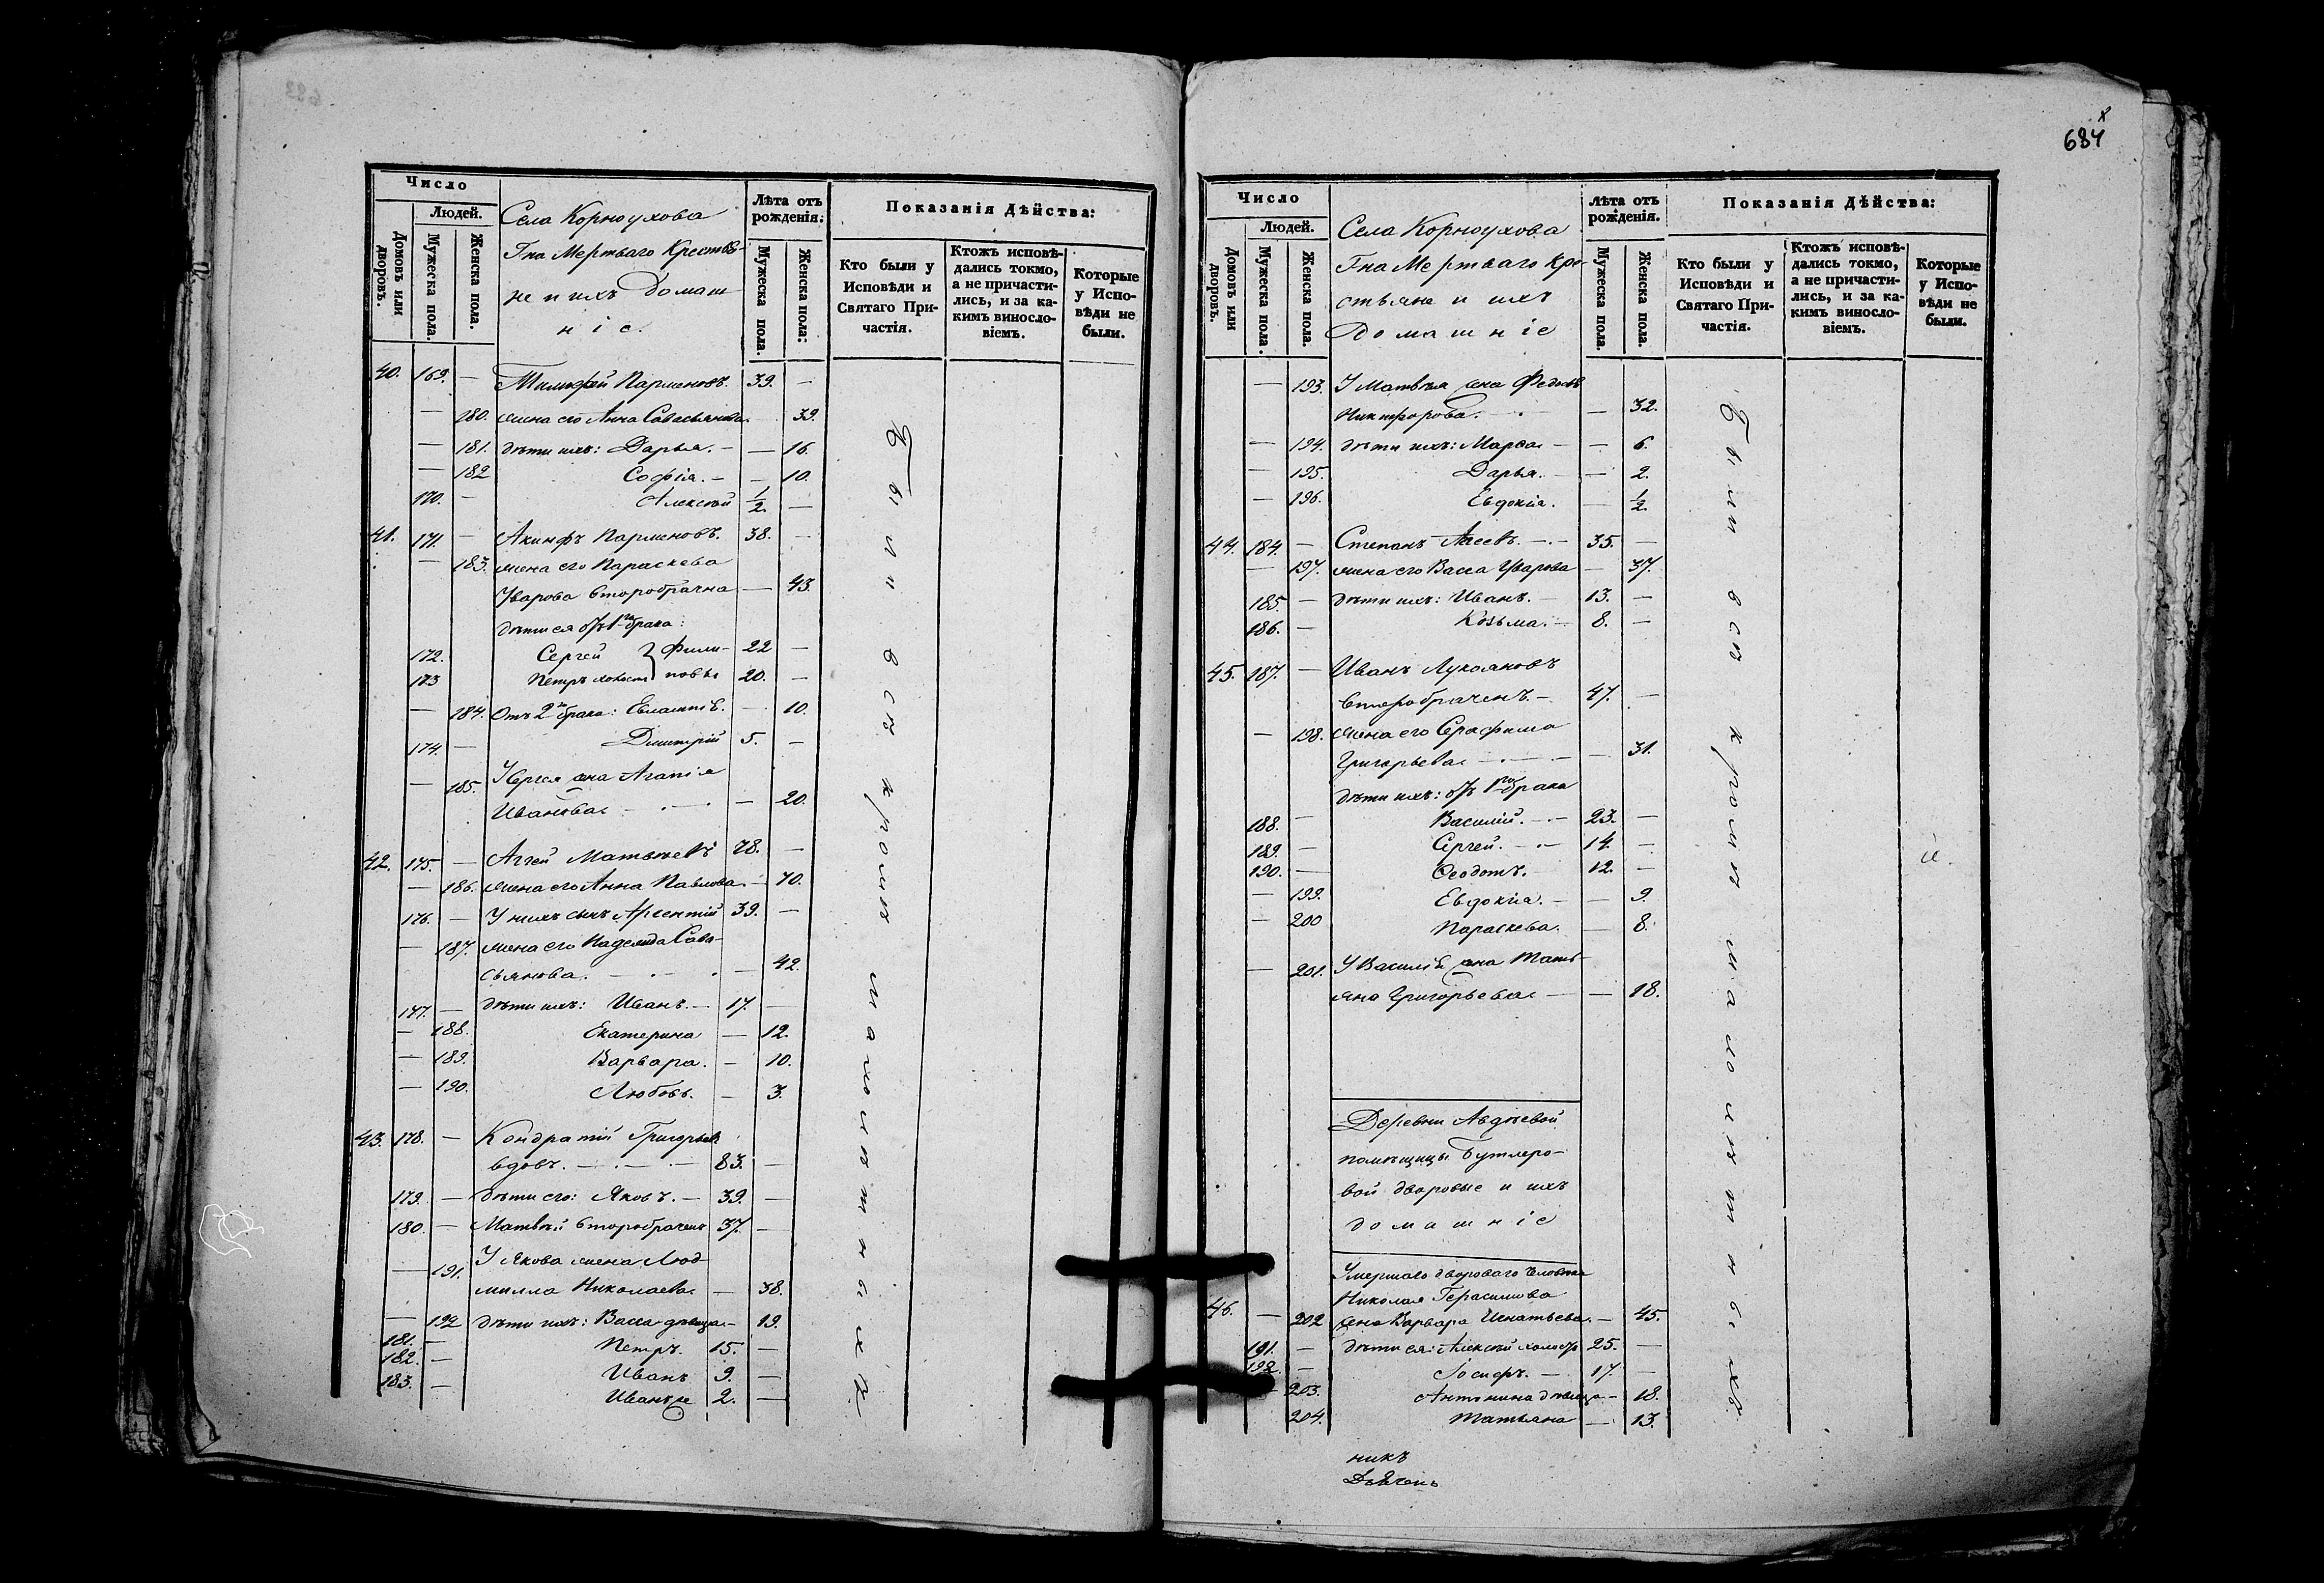 684
Число
Людей.
Домовъ или дворовъ.
Мужеска пола.
Женска пола.
Села Корноухова
Гна Мертваго Крестья-
не и ихъ домаш
ніе.
Лѣта отъ рожденія:
Мужеска пола.
Женска пола:
Показанія Дѣйства:
Кто были у Исповѣди и Святаго Причастія.
Ктожъ исповѣдались токмо, а не причастились, и за какимъ винословіемъ.
Которые у Исповѣди не были.
40. 169. — Тимофей Парменовъ. 39. —
— 180. жена его Анна Савастьянова. 39.
— 181. дѣти ихъ: Дарья. — — 16.
— 182 Софія. — — 10.
170. — Алексѣй 1/2. —
41. 171. — Акинфъ Парменовъ. 38. —
— 183. жена его Параскева
Уварова второбрачна — 43.
дѣти ея отъ 1го брака:
172. Сергей } Фили- 22 —
173 Петръ холост } повы 20. —
— 184. Отъ 2го брака: Евлампіѣ. — 10.
174. — Дмитрій 5. —
— 185. У Сергея жена Агапія
Иванова — 20.
42. 175. — Аггей Матвѣевъ 78. —
— 186. жена его Анна Павлова. — 70.
176. — У нихъ сынъ Арсентій 39. —
— 187. жена его Надежда Сава-
сьянова. — 42.
177. — дѣти ихъ: Иванъ. — 17. —
— 188. Екатерина — 12.
— 189. Варвара. — 10.
— 190. Любовь. — 3.
43. 178. — Кондратій Григорьевъ
вдовъ. — 83. —
179. — дѣти его: Яковъ. — 39. —
180. — Матвѣй второбраченъ 37. —
— 191. У Якова жена Люд-
милла Николаева — 38.
— 192 дѣти ихъ: Васса дѣвица — 19.
181. — Петръ. 15. —
182. — Иванъ 9. —
183. — Иванъ же 2. —
Были всѣ кромѣ малолѣтныхъ
Число
Людей.
Домовъ или дворовъ.
Мужеска пола.
Женска пола.
Села Корноухова
Гна Мертваго Кре-
стьяне и ихъ
домашніе
Лѣта отъ рожденія.
Мужеска пола.
Женска пола.
Показанія Дѣйства:
Кто были у Исповѣди и Святаго Причастія.
Ктожъ исповѣдались токмо, а не причастились, и за какимъ винословіемъ.
Которые у Исповѣди не были.
— 193. У Матвѣя жена Федосья
Никифорова. — 32.
— 194. дѣти ихъ: Марѳа — — 6.
— 195. Дарья. — — 2.
— 196. Евдокія. — 1/2.
44. 184. — Степанъ Агеевъ. — 35. —
— 197. жена его Васса Уварова — 37.
185. — дѣти ихъ: Иванъ. — 13. —
186. — Козьма. — 8. —
45. 187. — Иванъ Лукояновъ
второбраченъ. — 47. —
— 198. жена его Серафима
Григорьева — 31.
дѣти ихъ: отъ 1го брака
188. — Василій. — 23. —
189. — Сергей. — 14. —
190. — Ѳеодотъ. 12. —
— 199. Евдокія. — — 9.
— 200 Параскева. — 8.
— 201. У Василіѣ жена Тать-
яна Григорьева — — 18.
Деревни Авдѣевой
помѣщицы Бутлеро-
вой дворовые и ихъ
домашніе
Умершаго двороваго человѣка
Николая Герасимова
46. — 202 жена Варвара Игнатьева. — 45.
191. — дѣти ея: Алексѣй холостъ 25. —
192. — Іосифъ. — 17. —
— 203. Антонина дѣвица — 18.
204. Татьяна — 13.
Были всѣ кромѣ малолѣтныхъ
никъ